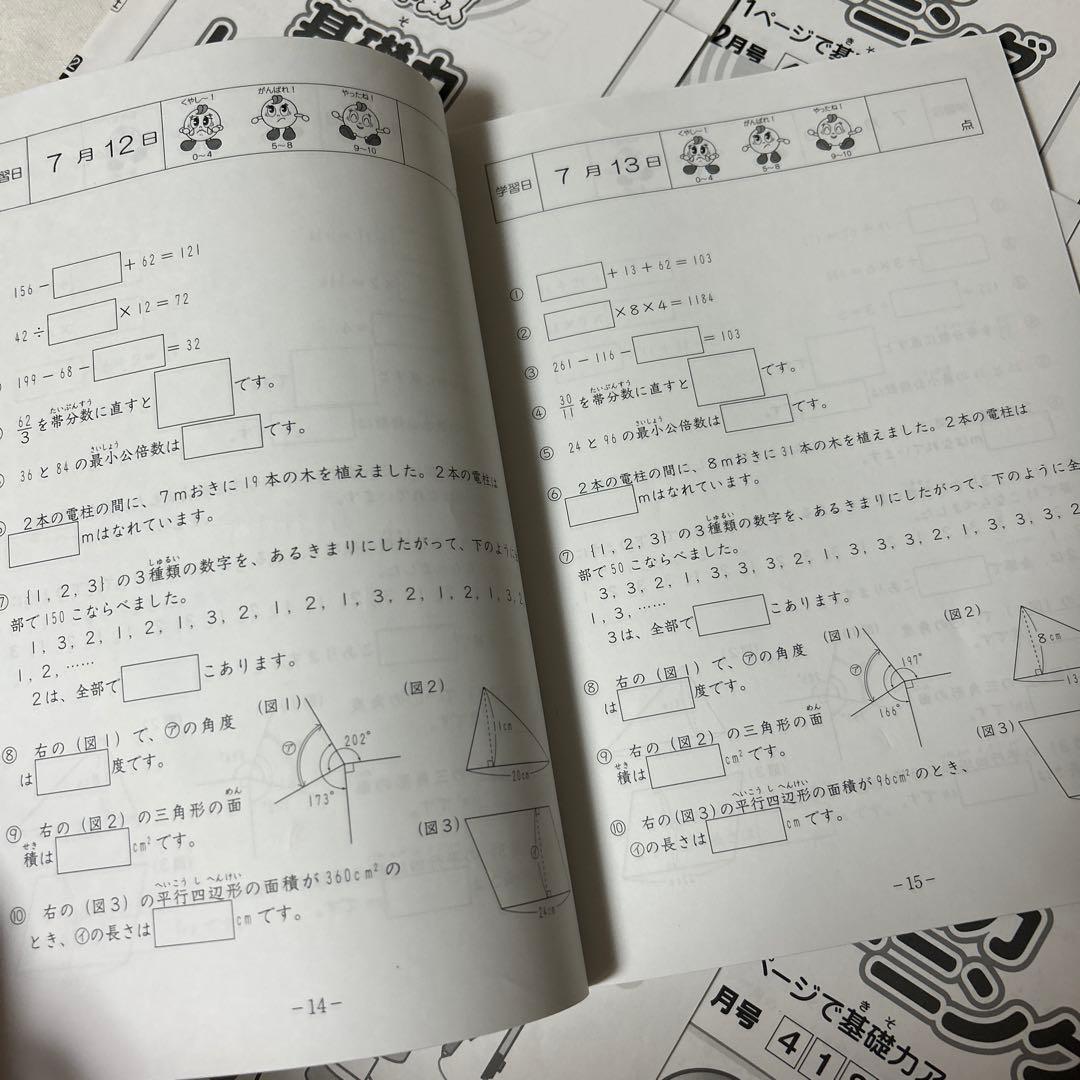 基礎力
きそ
1ページで基
2月号
ニング
習日 7月12日
くやし〜! がんばれ! やったね!
0〜4 5〜8 9〜10
156−□+62=121
42÷□×12=72
199−68−□=32
62/3を帯分数に直すと□です。
たいぶんすう
36と84の最小公倍数は□です。
さいしょう
2本の電柱の間に、7mおきに19本の木を植えました。2本の電柱は
□mはなれています。
⑦ {1, 2, 3} の3種類の数字を、あるきまりにしたがって、下のように全
しゅるい
部で150こならべました。
1, 3, 2, 1, 2, 1, 3, 2, 1, 2, 1, 3, 2, 1, 2, 1, 3, 2
1, 2, ……
2は、全部で□こあります。
⑧ 右の(図1)で、㋐の角度
は□度です。
(図1)
㋐
202°
173°
(図2)
11cm
20cm
⑨ 右の(図2)の三角形の面
めん
積は□cm²です。
せき
(図3)
㋑
24cm
⑩ 右の(図3)の平行四辺形の面積が360cm²の
へいこうしへんけい
とき、㋑の長さは□cmです。
−14−
学習日 7月13日 点
くやし〜! がんばれ! やったね!
0〜4 5〜8 9〜10
① □+13+62=103
② □×8×4=1184
③ 261−116−□=103
④ 30/11を帯分数に直すと□です。
たいぶんすう
⑤ 24と96の最小公倍数は□です。
さいしょう
⑥ 2本の電柱の間に、8mおきに31本の木を植えました。2本の電柱は
□mはなれています。
⑦ {1, 2, 3} の3種類の数字を、あるきまりにしたがって、下のように全
しゅるい
部で50こならべました。
1, 3, 3, 2, 1, 3, 3, 3, 2, 1, 3, 3, 3, 2, 1, 3, 3, 3, 2
1, 3, ……
3は、全部で□こあります。
⑧ 右の(図1)で、㋐の角度
は□度です。
(図1)
㋐
197°
166°
(図2)
8cm
13
⑨ 右の(図2)の三角形の面
めん
積は□cm²です。
せき
(図3)
⑩ 右の(図3)の平行四辺形の面積が96cm²のとき、
へいこうしへんけい
㋑の長さは□cmです。
−15−
ニング
ページで基礎力ア
きそ
月号 4 1